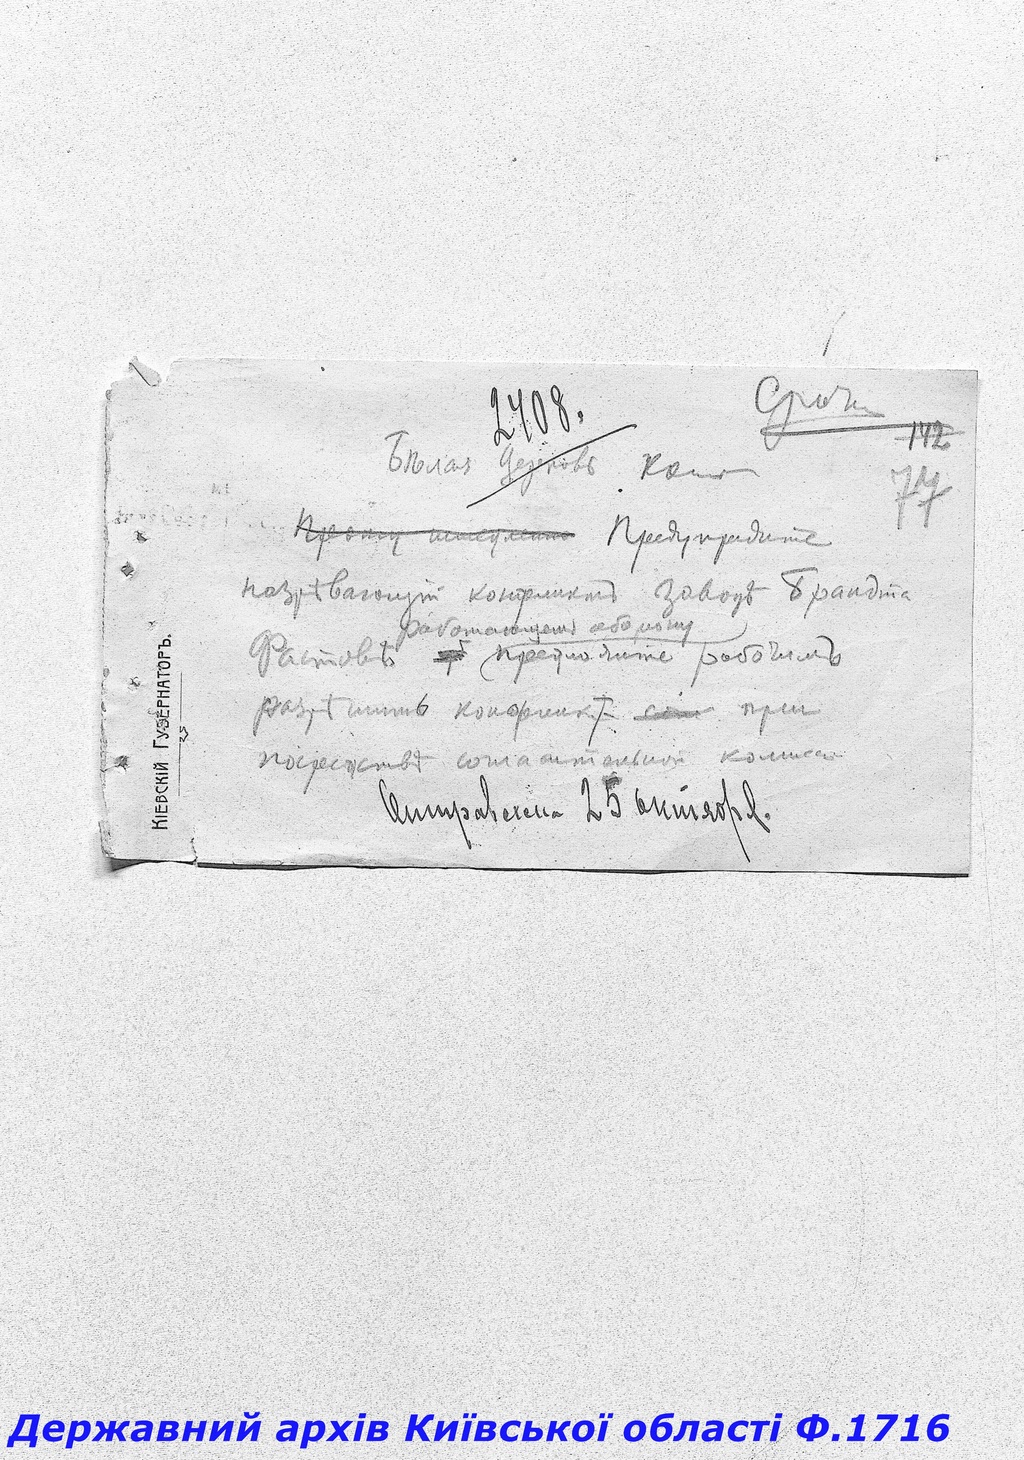 2408.
Срочн
142
77
Бѣлая Церковь
Прошу немедленно Предупредите
назрѣвающій конфликтъ заводѣ Брандта
работающемъ оборону
Фастовѣ предложите рабочимъ
разрѣшить конфликт при
посредствѣ согласительной комисси
Отправлена 25 октября.
КІЕВСКІЙ ГУБЕРНАТОРЪ.
Державний архів Київської області Ф.1716